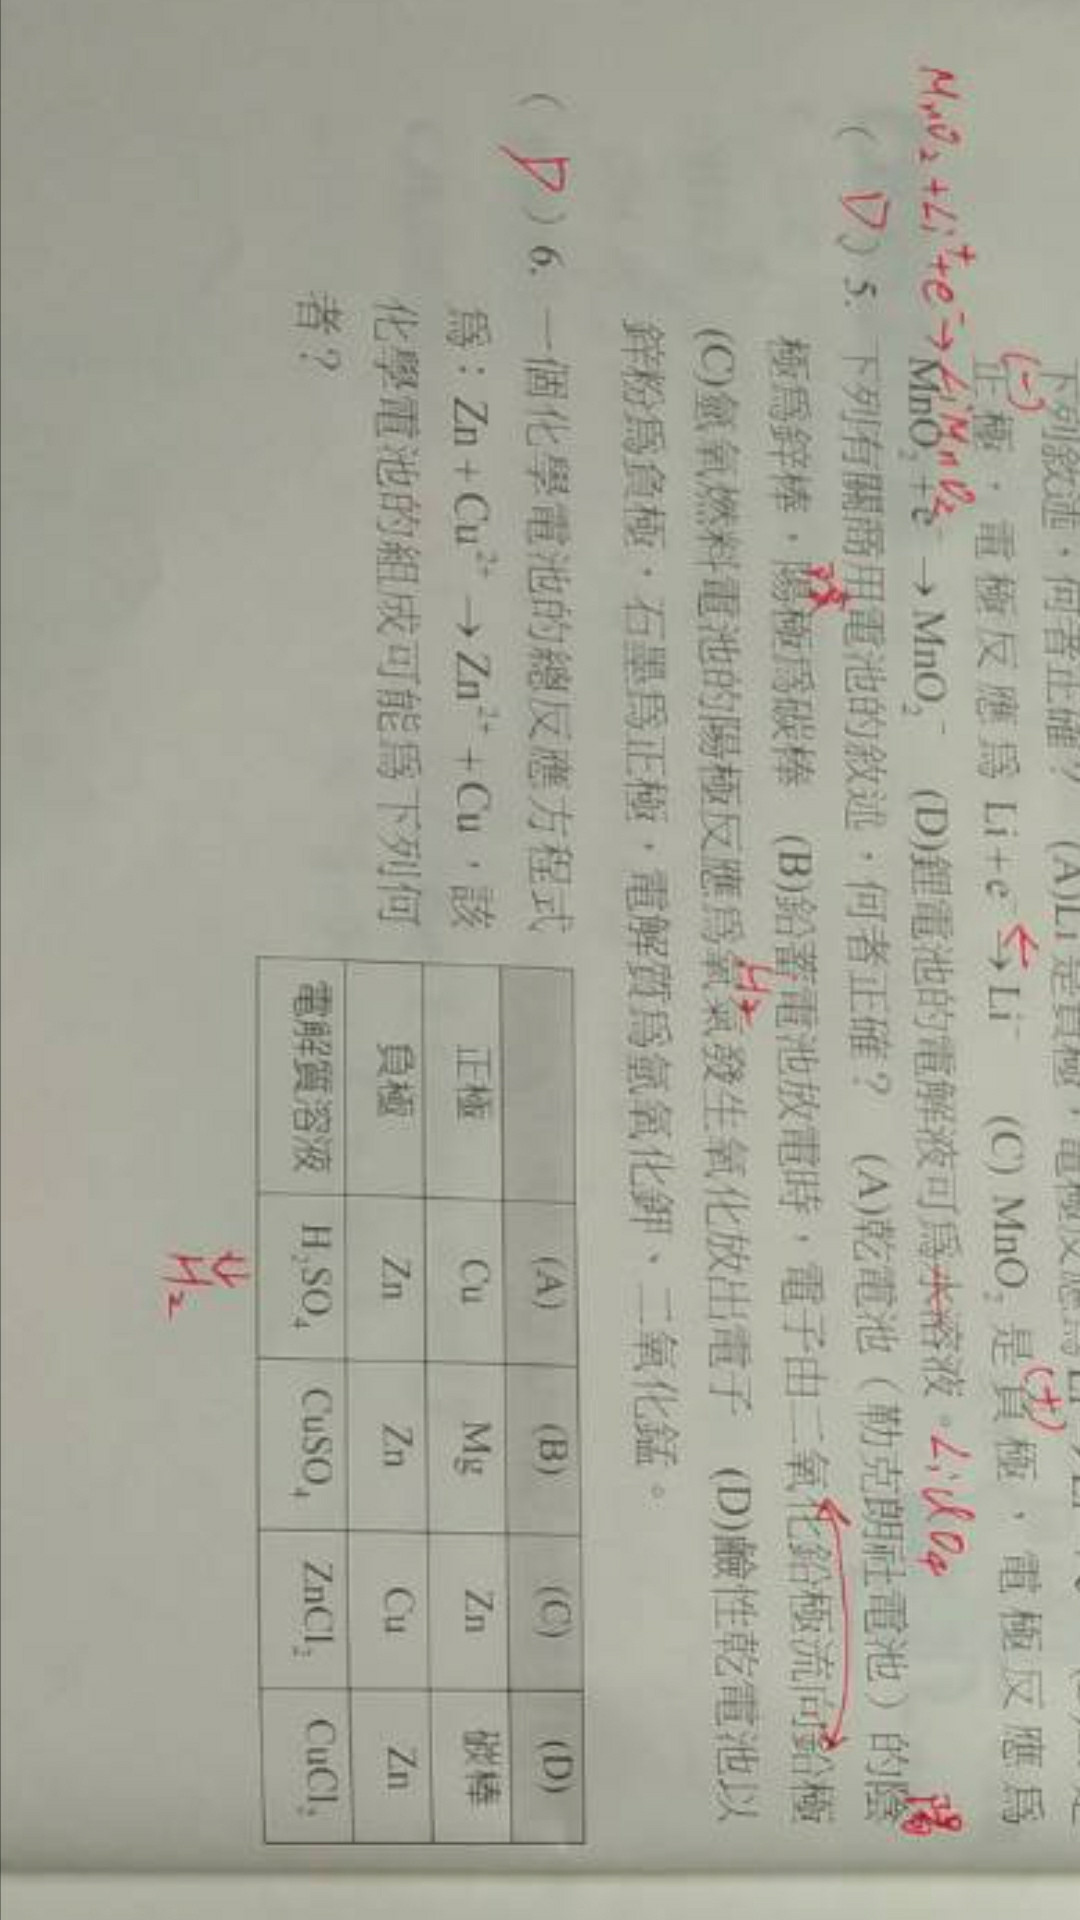 下列敘述，何者正確？ (A)Li是負極，電極反應為
(-)
正極，電極反應為 Li + e⁻ → Li⁻ (C) MnO₂ 是負極，電極反應為
(+)
MnO₂ + Li⁺ + e⁻ → LiMnO₂
MnO₂ + e⁻ → MnO₂⁻ (D)鋰電池的電解液可為水溶液。
( D ) 5. 下列有關商用電池的敘述，何者正確？ (A)乾電池（勒克朗社電池）的陰
陽
極為鋅棒，陽極為碳棒 (B)鉛蓄電池放電時，電子由二氧化鉛極流向鉛極
陰
(C)氫氧燃料電池的陽極反應為氧氣發生氧化放出電子 (D)鹼性乾電池以
H₂
鋅粉為負極，石墨為正極，電解質為氫氧化鉀、二氧化錳。
( D ) 6. 一個化學電池的總反應方程式
為：Zn + Cu²⁺ → Zn²⁺ + Cu，該
化學電池的組成可能為下列何
者？
(A) (B) (C) (D)
正極 Cu Mg Zn 碳棒
負極 Zn Zn Cu Zn
電解質溶液 H₂SO₄ CuSO₄ ZnCl₂ CuCl₂
⇓
H₂